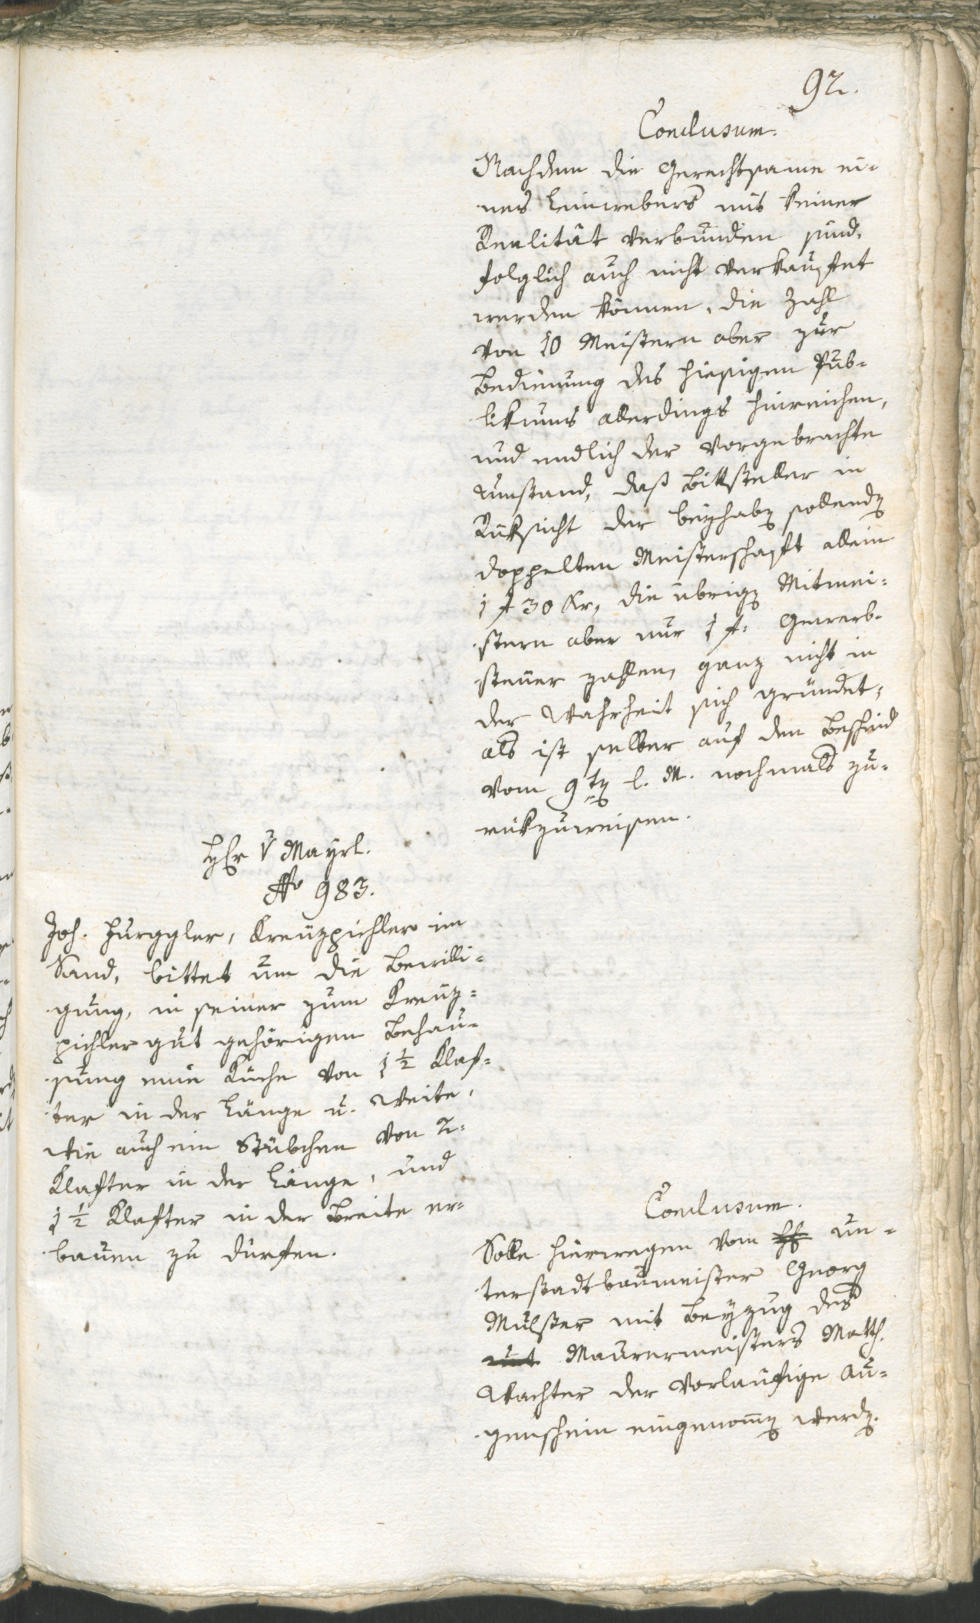 92.
Conclusum.
Nachdem die Gerechtsame ei-
nes Leinwebers mit keiner
Realität verbunden sind,
folglich auch nicht verkaufet
werden können, die Zahl
von 10 Meistern aber zur
Bedienung des hiesigen Pub-
likums allerdings hinreichen,
und endlich der vorgebrachte
Umstand, daß Bittsteller in
Rüksicht der beyhabē sollendē
doppelten Meisterschaft allein
1 f 30 kr, die übrigē Mitmei-
stern aber nur 1 f. Gewerb-
steuer zahlen, ganz nicht in
der Wahrheit sich gründet,
als ist selber auf den Bescheid
vom 9tē l. M. nochmals zu-
rükzuweisen.
Hr v Mayrl.
No 983.
Joh. Hurggler, Kreuzpichler im
Sand, bittet um die Bewilli-
gung, in seiner zum Kreuz-
pichler gut gehörigen Behau-
sung eine Küche von 1 1/2 Klaf-
ter in der Länge u. Weite,
wie auch ein Stübchen von 2
Klafter in der Länge, und
1 1/2 Klafter in der Breite er-
bauen zu dürfen.
Conclusum.
Solle hierwegen vom un-
terstadtbaumeister Georg
Mulser mit Beyzug des
Maurermeisters Matth.
Wachter der vorläufige Au-
genschein eingenom̄ē werdē.